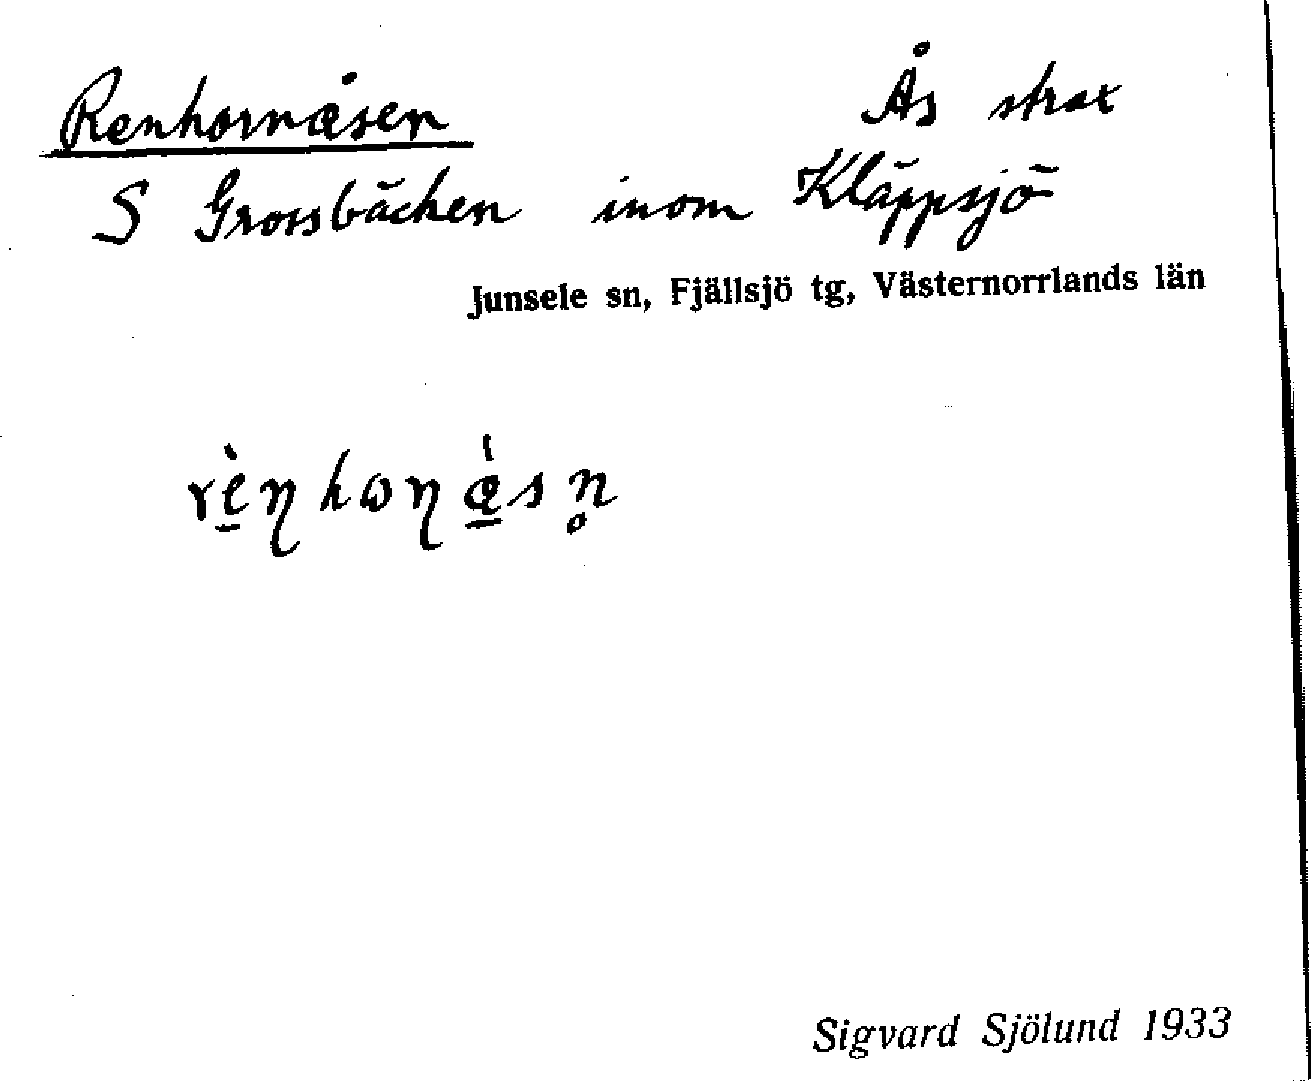 Renhornåsen Ås strax
S Grossbäcken inom Kläppsjö
Junsele sn, Fjällsjö tg, Västernorrlands län
Sigvard Sjölund 1933